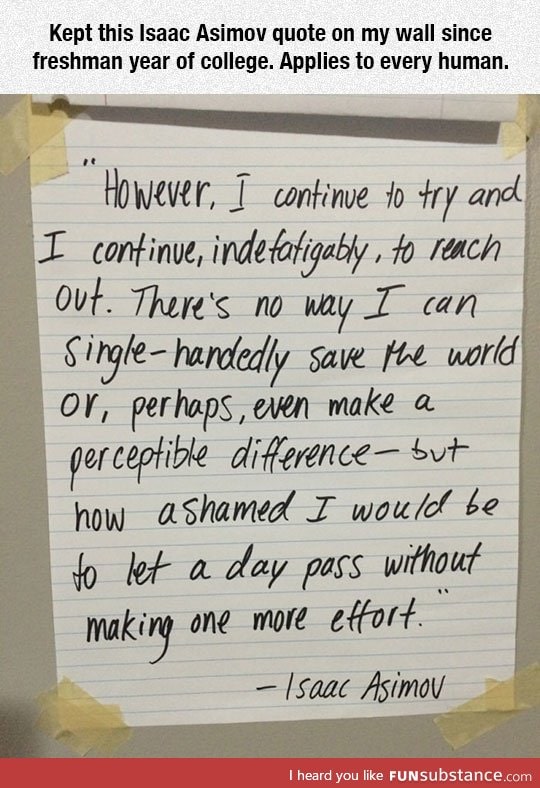 Kept this Isaac Asimov quote on my wall since
freshman year of college. Applies to every human.
"However, I continue to try and
I continue, indefatigably, to reach
out. There's no way I can
single-handedly save the world
or, perhaps, even make a
perceptible difference - but
how ashamed I would be
to let a day pass without
making one more effort."
- Isaac Asimov
I heard you like FUNsubstance.com